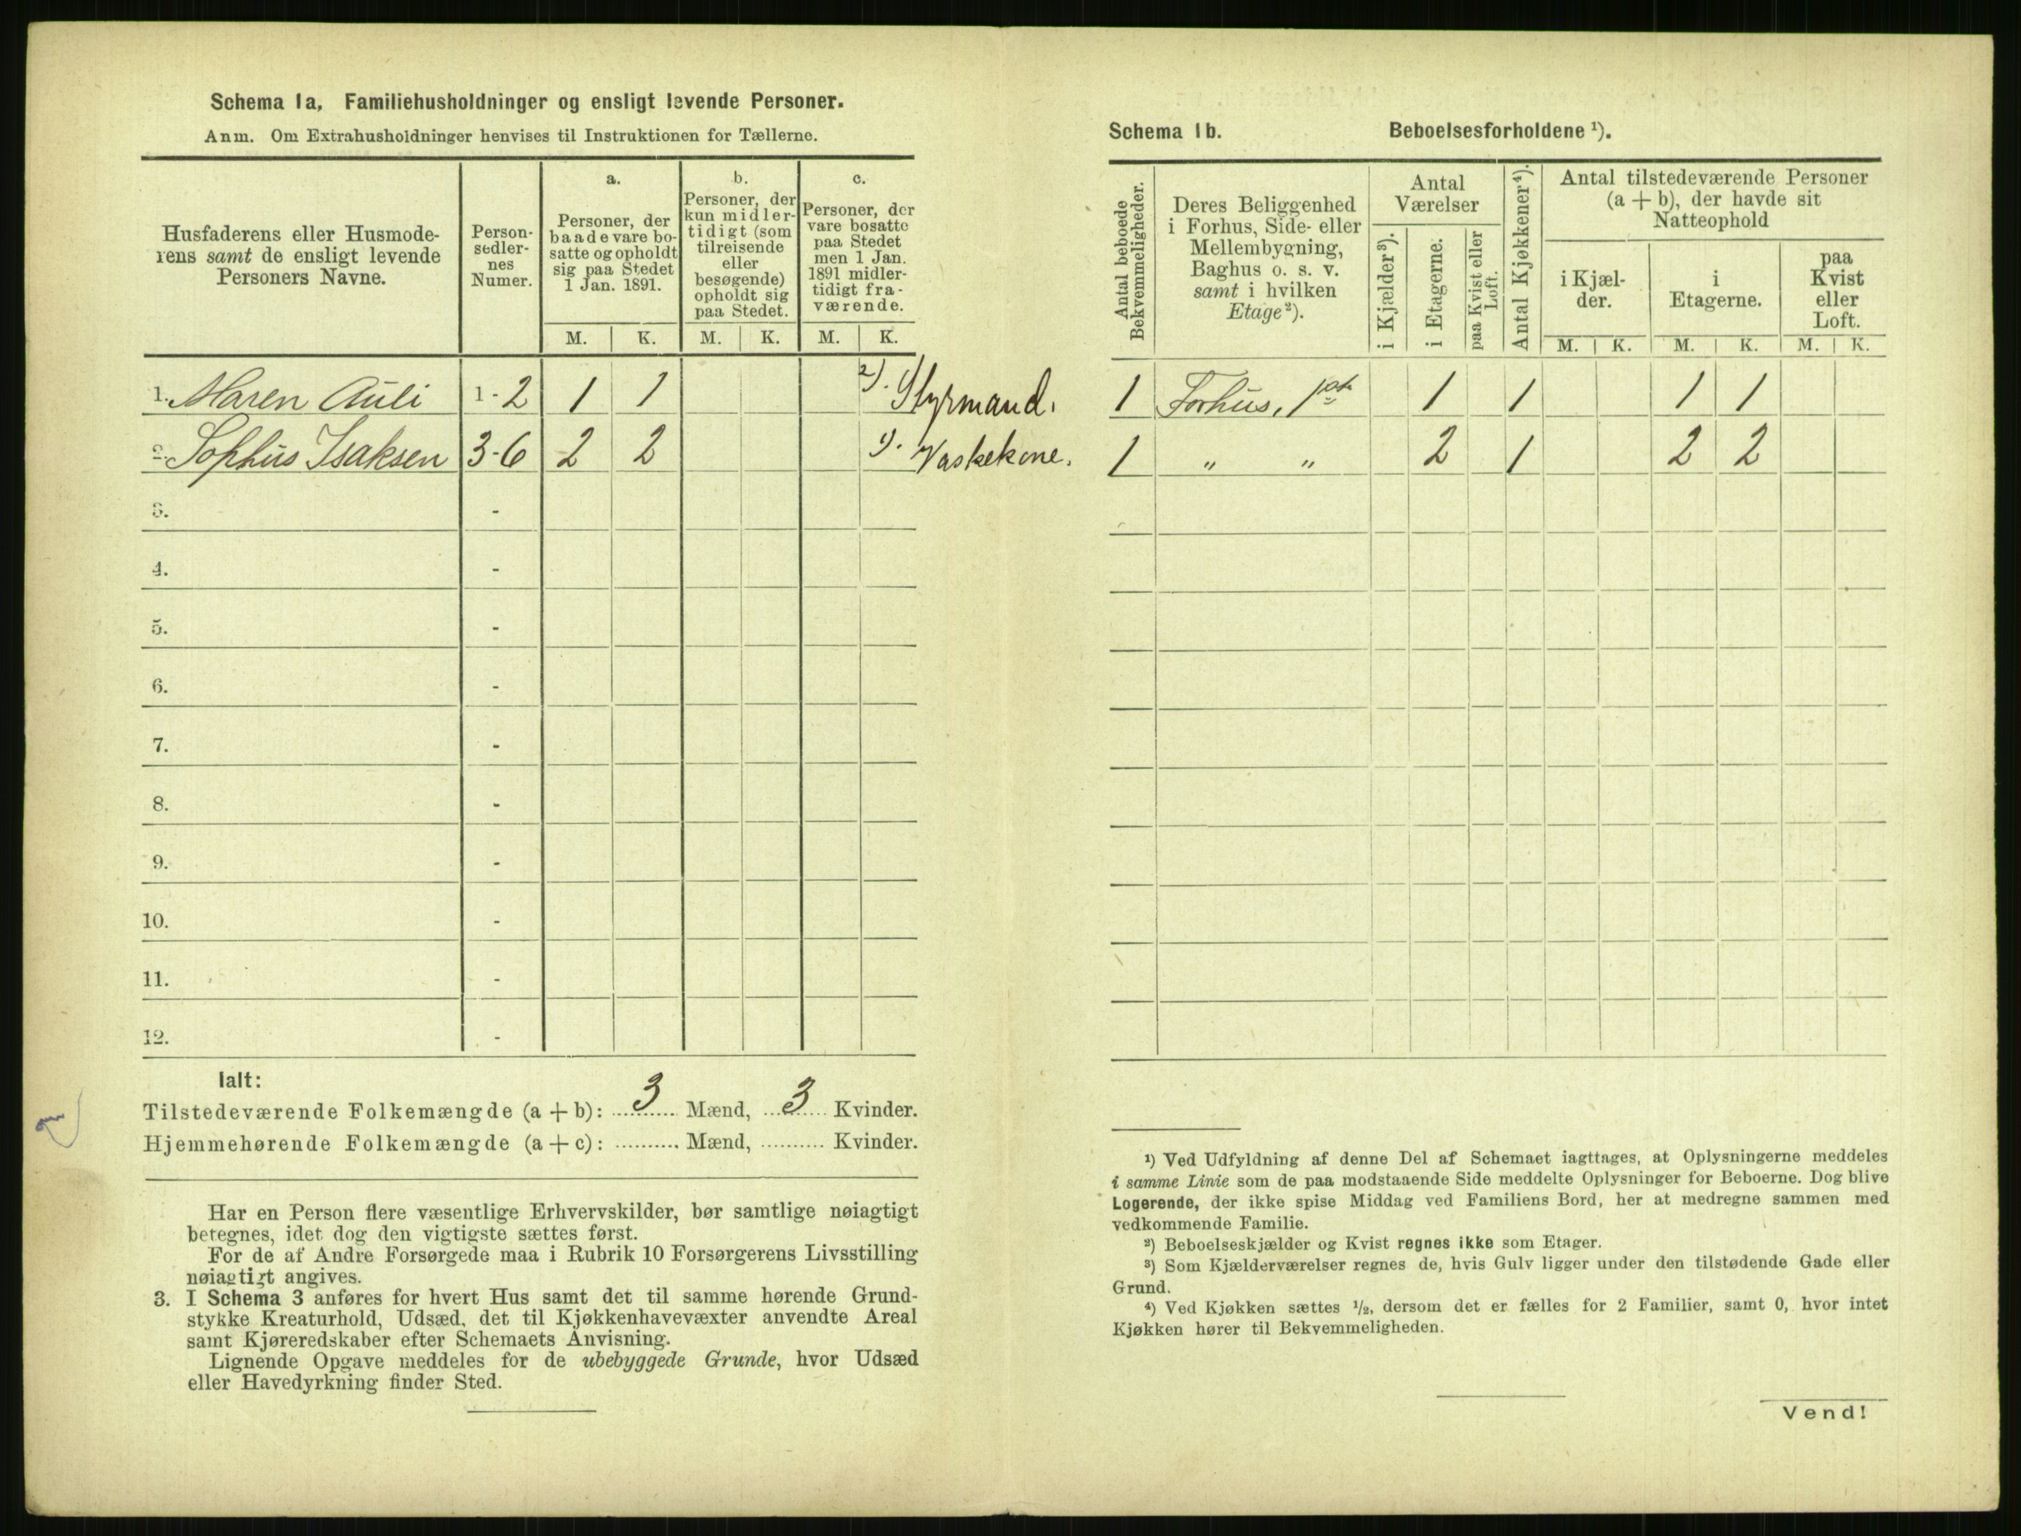 Schema 1a, Familiehusholdninger og ensligt levende Personer.
Anm. Om Extrahusholdninger henvises til Instruktionen for Tællerne.
Husfaderens eller Husmode-
rens samt de ensligt levende
Personers Navne.
Person-
sedler-
nes
Numer.
a.
Personer, der
baade vare bo-
satte og opholdt
sig paa Stedet
1 Jan. 1891.
b.
Personer, der
kun midler-
tidigt (som
tilreisende
eller
besøgende)
opholdt sig
paa Stedet.
c.
Personer, der
vare bosatte
paa Stedet
men 1 Jan.
1891 midler-
tidigt fra-
værende.
M. K. M. K. M. K.
1. Maren Auli 1-2 1 1 2). Styrmand.
2. Sophus Isaksen 3-6 2 2 1). Vaskekone.
3. -
4. -
5. -
6. -
7. -
8. -
9. -
10. -
11. -
12. -
Ialt:
Tilstedeværende Folkemængde (a + b): 3 Mænd, 3 Kvinder.
Hjemmehørende Folkemængde (a + c): .......... Mænd, .......... Kvinder.
Har en Person flere væsentlige Erhvervskilder, bør samtlige nøiagtigt
betegnes, idet dog den vigtigste sættes først.
For de af Andre Forsørgede maa i Rubrik 10 Forsørgerens Livsstilling
nøiagtigt angives.
3. I Schema 3 anføres for hvert Hus samt det til samme hørende Grund-
stykke Kreaturhold, Udsæd, det til Kjøkkenhavevæxter anvendte Areal
samt Kjøreredskaber efter Schemaets Anvisning.
Lignende Opgave meddeles for de ubebyggede Grunde, hvor Udsæd
eller Havedyrkning finder Sted.
Schema 1b. Beboelsesforholdene ¹).
Antal beboede
Bekvemmeligheder.
Deres Beliggenhed
i Forhus, Side- eller
Mellembygning,
Baghus o. s. v.
samt i hvilken
Etage²).
Antal
Værelser
i Kjælder³).
i Etagerne.
paa Kvist eller
Loft.
Antal Kjøkkener⁴).
Antal tilstedeværende Personer
(a + b), der havde sit
Natteophold
i Kjæl-
der.
i
Etagerne.
paa
Kvist
eller
Loft.
M. K. M. K. M. K.
1 Forhus, 1ste 1 1 1 1
1 „ „ 2 1 2 2
¹) Ved Udfyldning af denne Del af Schemaet iagttages, at Oplysningerne meddeles
i samme Linie som de paa modstaaende Side meddelte Oplysninger for Beboerne. Dog blive
Logerende, der ikke spise Middag ved Familiens Bord, her at medregne sammen med
vedkommende Familie.
²) Beboelseskjælder og Kvist regnes ikke som Etager.
³) Som Kjælderværelser regnes de, hvis Gulv ligger under den tilstødende Gade eller
Grund.
⁴) Ved Kjøkken sættes ¹/₂, dersom det er fælles for 2 Familier, samt 0, hvor intet
Kjøkken hører til Bekvemmeligheden.
Vend!